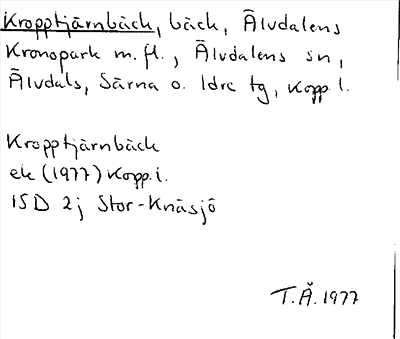 Kropptjärnbäck, bäck, Älvdalens
Kronopark m.fl., Älvdalens sn,
Älvdals, Särna o. Idre tg, Kopp.l.
Kropptjärnbäck
ek (1977) Kopp.l.
15D 2j Stor-Knäsjö
T.Å. 1977